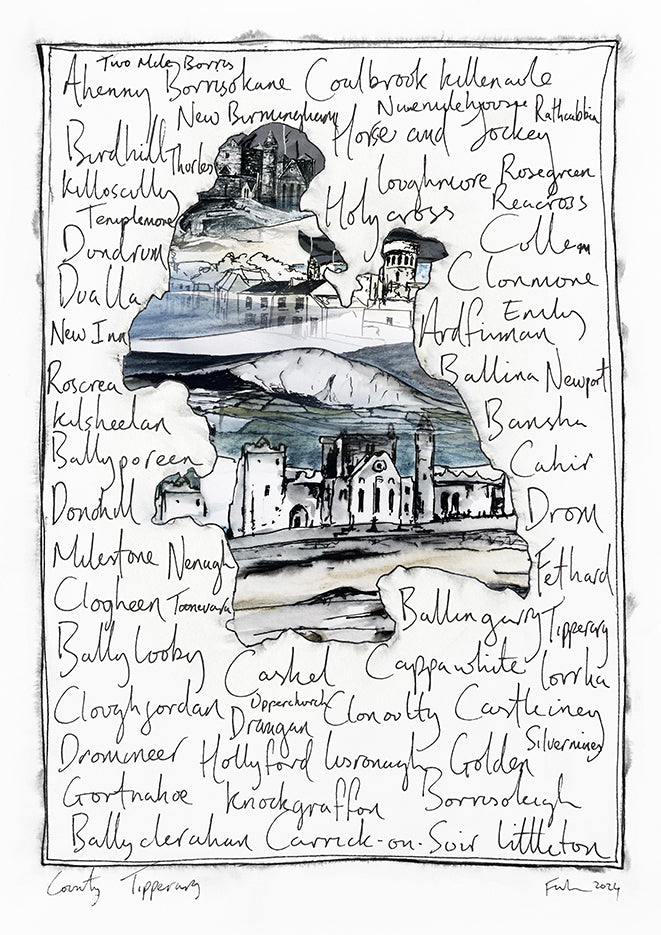 Two Mile Borris
Ahenny Borrisokane Coalbrook Killenaule
New Birmingham Rathcabbin
Birdhill Thurles Horse and Jockey
Killoscully Loughmore Rosegreen
Templemore Holycross Reacross
Dundrum
Dualla Clonmore
New Inn Ardfinnan Emly
Roscrea Ballina Newport
Kilsheelan Bansha
Ballyporeen Cahir
Donohill Drom
Milestone Nenagh Fethard
Clogheen Toomevara Ballingarry Tipperary
Ballylooby Cashel Cappawhite Lorrha
Cloughjordan Upperchurch Clonoulty Castleiney
Drangan
Dromineer Hollyford Lisronagh Golden Silvermines
Gortnahoe Knockgraffon Borrisoleigh
Ballyclerahan Carrick-on-Suir Littleton
County Tipperary 2024